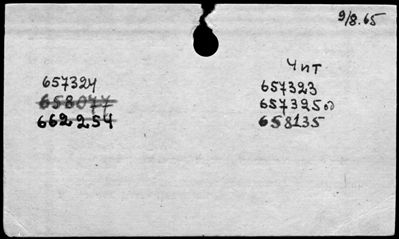 9/8.65
Чит
657324
657323
658077
657325
662254
658135